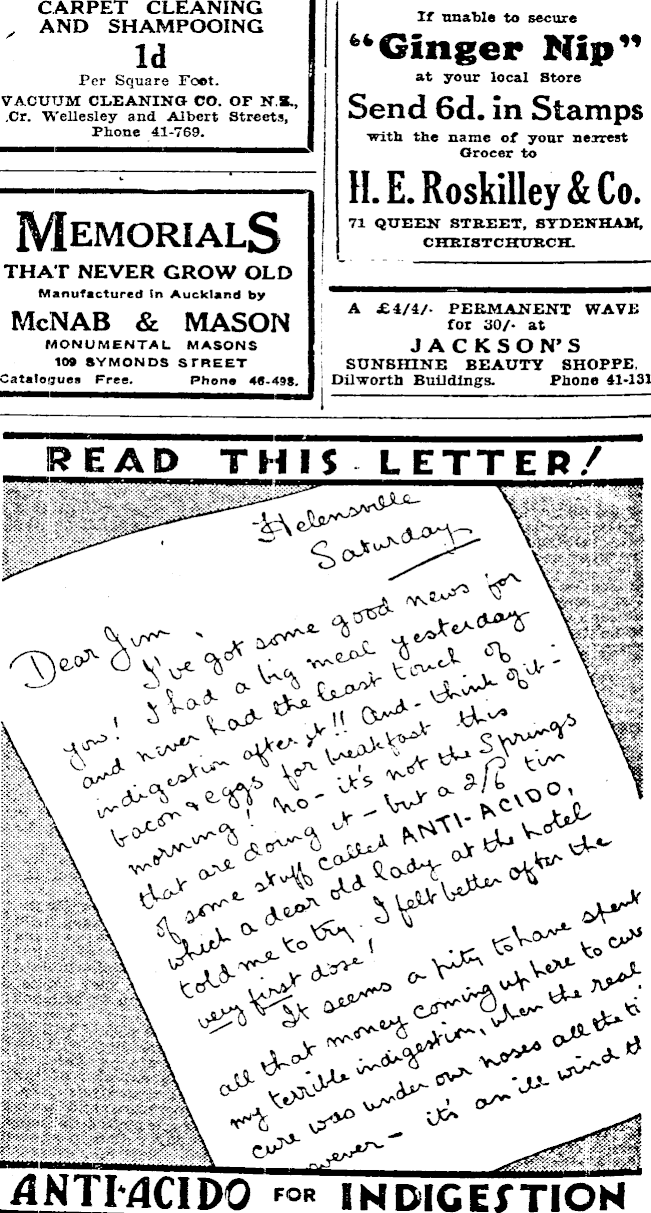 CARPET CLEANING
AND SHAMPOOING
1d
Per Square Foot.
VACUUM CLEANING CO. OF N.Z.,
Cr. Wellesley and Albert Streets,
Phone 41-769.
MEMORIALS
THAT NEVER GROW OLD
Manufactured in Auckland by
McNAB & MASON
MONUMENTAL MASONS
109 SYMONDS STREET
Catalogues Free. Phone 46-498.
If unable to secure
"Ginger Nip"
at your local Store
Send 6d. in Stamps
with the name of your nearest
Grocer to
H. E. Roskilley & Co.
71 QUEEN STREET, SYDENHAM,
CHRISTCHURCH.
A £4/4/- PERMANENT WAVE
for 30/- at
JACKSON'S
SUNSHINE BEAUTY SHOPPE,
Dilworth Buildings. Phone 41-131
READ THIS LETTER!
Helensville
Saturday
Dear Jim,
I've got some good news for
you! I had a big meal yesterday
and never had the least touch of
indigestion after it!! And - think of it -
bacon & eggs for breakfast this
morning! No - it's not the Springs
that are doing it - but a 2/6 tin
of some stuff called ANTI-ACIDO,
which a dear old lady at the hotel
told me to try. I felt better after the
very first dose!
It seems a pity to have spent
all that money coming up here to cure
my terrible indigestion, when the real
cure was under our noses all the ti
wever - it's an ill wind th
ANTI-ACIDO FOR INDIGESTION